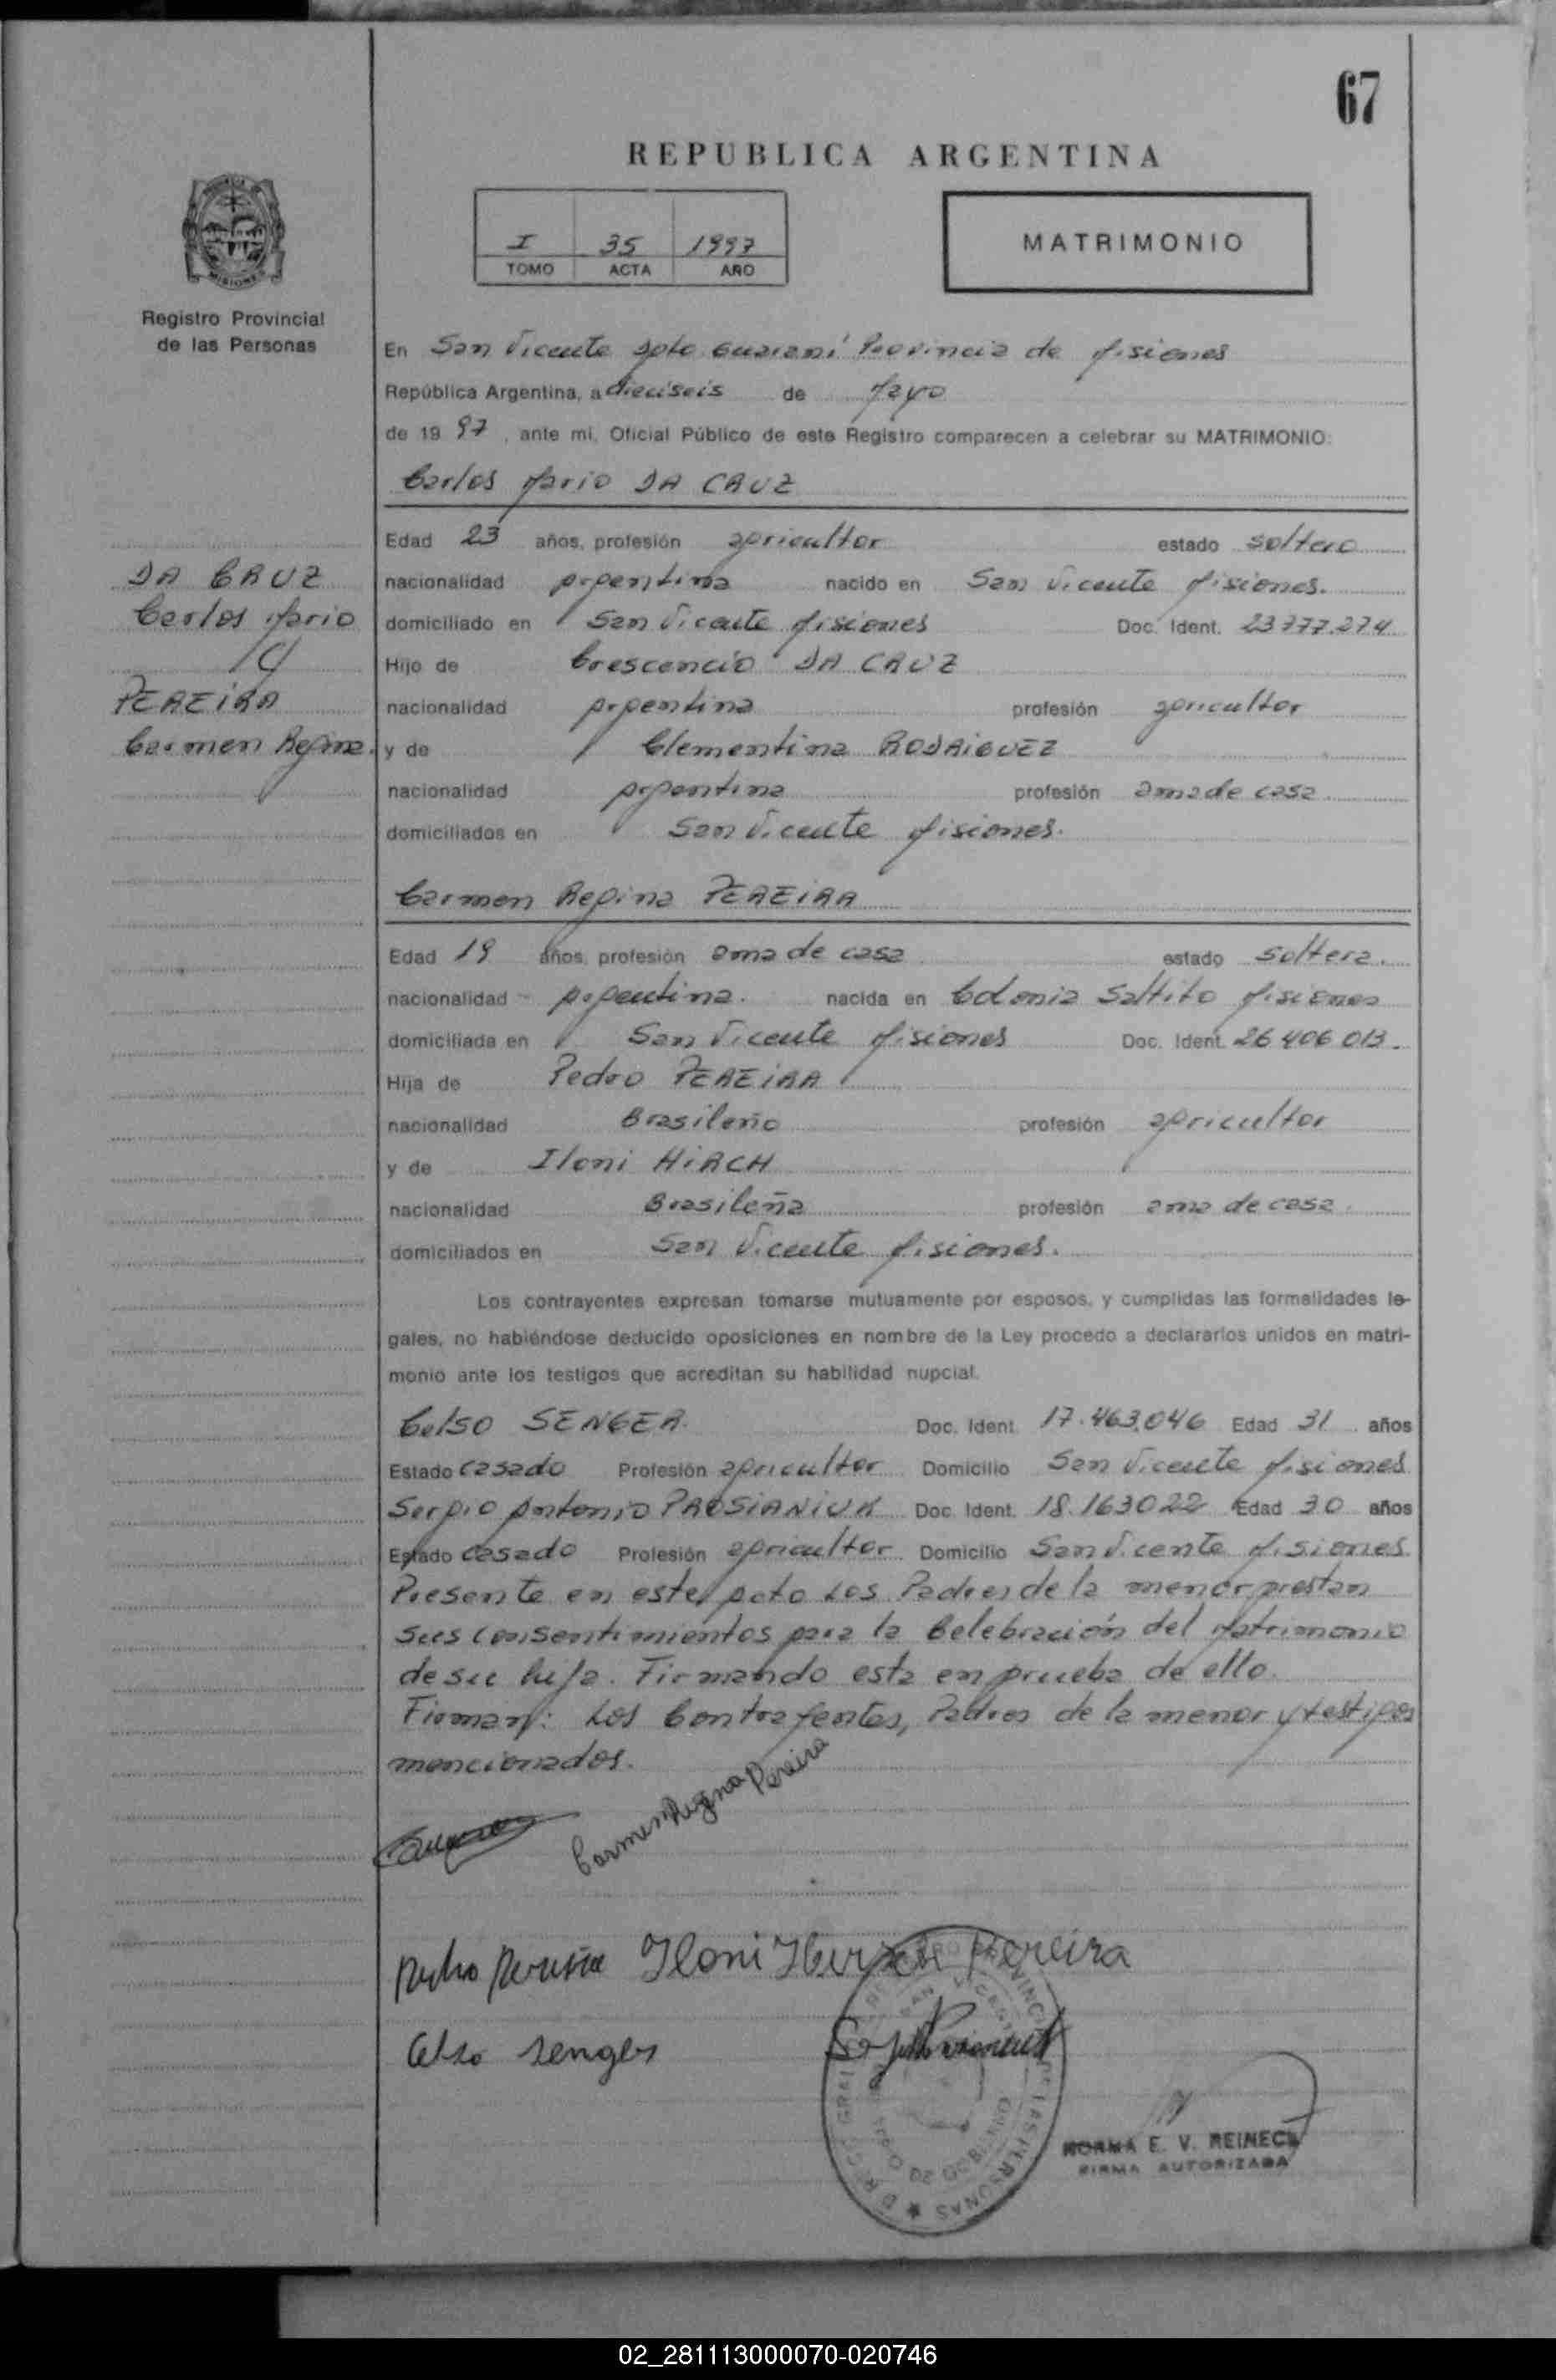 67
REPUBLICA ARGENTINA
I 35 1997
TOMO ACTA AÑO
MATRIMONIO
Registro Provincial
de las Personas
En San Vicente Dpto Guaraní Provincia de Misiones
República Argentina, a dieciseis de Mayo
de 19 97, ante mi, Oficial Público de este Registro comparecen a celebrar su MATRIMONIO:
Carlos Mario DA CRUZ
Edad 23 años, profesión agricultor estado soltero
nacionalidad Argentina nacido en San Vicente Misiones.
domiciliado en San Vicente Misiones Doc. Ident. 23777.274
Hijo de Crescencio DA CRUZ
nacionalidad Argentina profesión agricultor
y de Clementina RODRIGUEZ
nacionalidad Argentina profesión ama de casa
domiciliados en San Vicente Misiones.
DA CRUZ
Carlos Mario
C/
PEREIRA
Carmen Regina.
Carmen Regina PEREIRA
Edad 19 años, profesión ama de casa estado soltera.
nacionalidad Argentina. nacida en Colonia Saltito Misiones
domiciliada en San Vicente Misiones Doc. Ident. 26 406 013.
Hija de Pedro PEREIRA
nacionalidad Brasileño profesión agricultor
y de Iloni HIRCH
nacionalidad Brasileña profesión ama de casa.
domiciliados en San Vicente Misiones.
Los contrayentes expresan tomarse mutuamente por esposos, y cumplidas las formalidades le-
gales, no habiéndose deducido oposiciones en nombre de la Ley procedo a declararlos unidos en matri-
monio ante los testigos que acreditan su habilidad nupcial.
Celso SENGER. Doc. Ident. 17.463.046 Edad 31 años
Estado casado Profesión agricultor Domicilio San Vicente Misiones
Sergio Antonio PROSIANIUK Doc. Ident. 18.163022 Edad 30 años
Estado casado Profesión agricultor Domicilio San Vicente Misiones
Presente en este Acto Los Padres de la menor prestan
sus consentimientos para la Celebración del Matrimonio
de su hija. Firmando esta en prueba de ello.
Firman: Los Contrayentes, Padres de la menor y testigos
mencionados.
Carmen Regina Pereira
Pedro Pereira Iloni Pereira
Celso Senger
NORMA E. V. REINECK
FIRMA AUTORIZADA
02_281113000070-020746